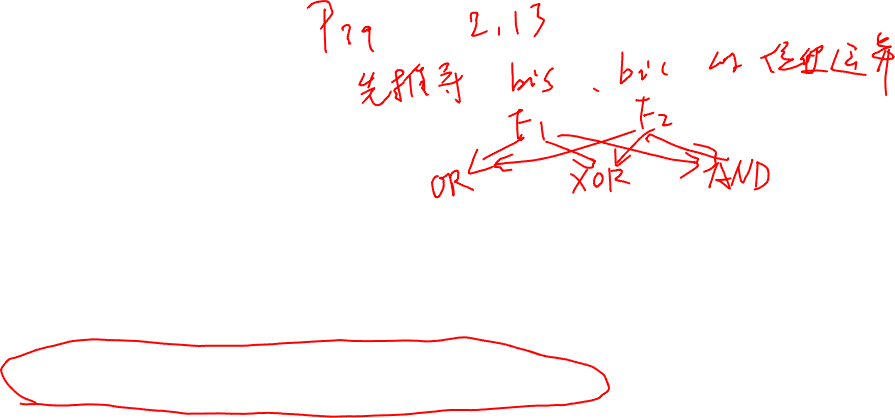 P39 2.13
先推导 bis、bic 的位级运算
F1 F2
OR XOR AND